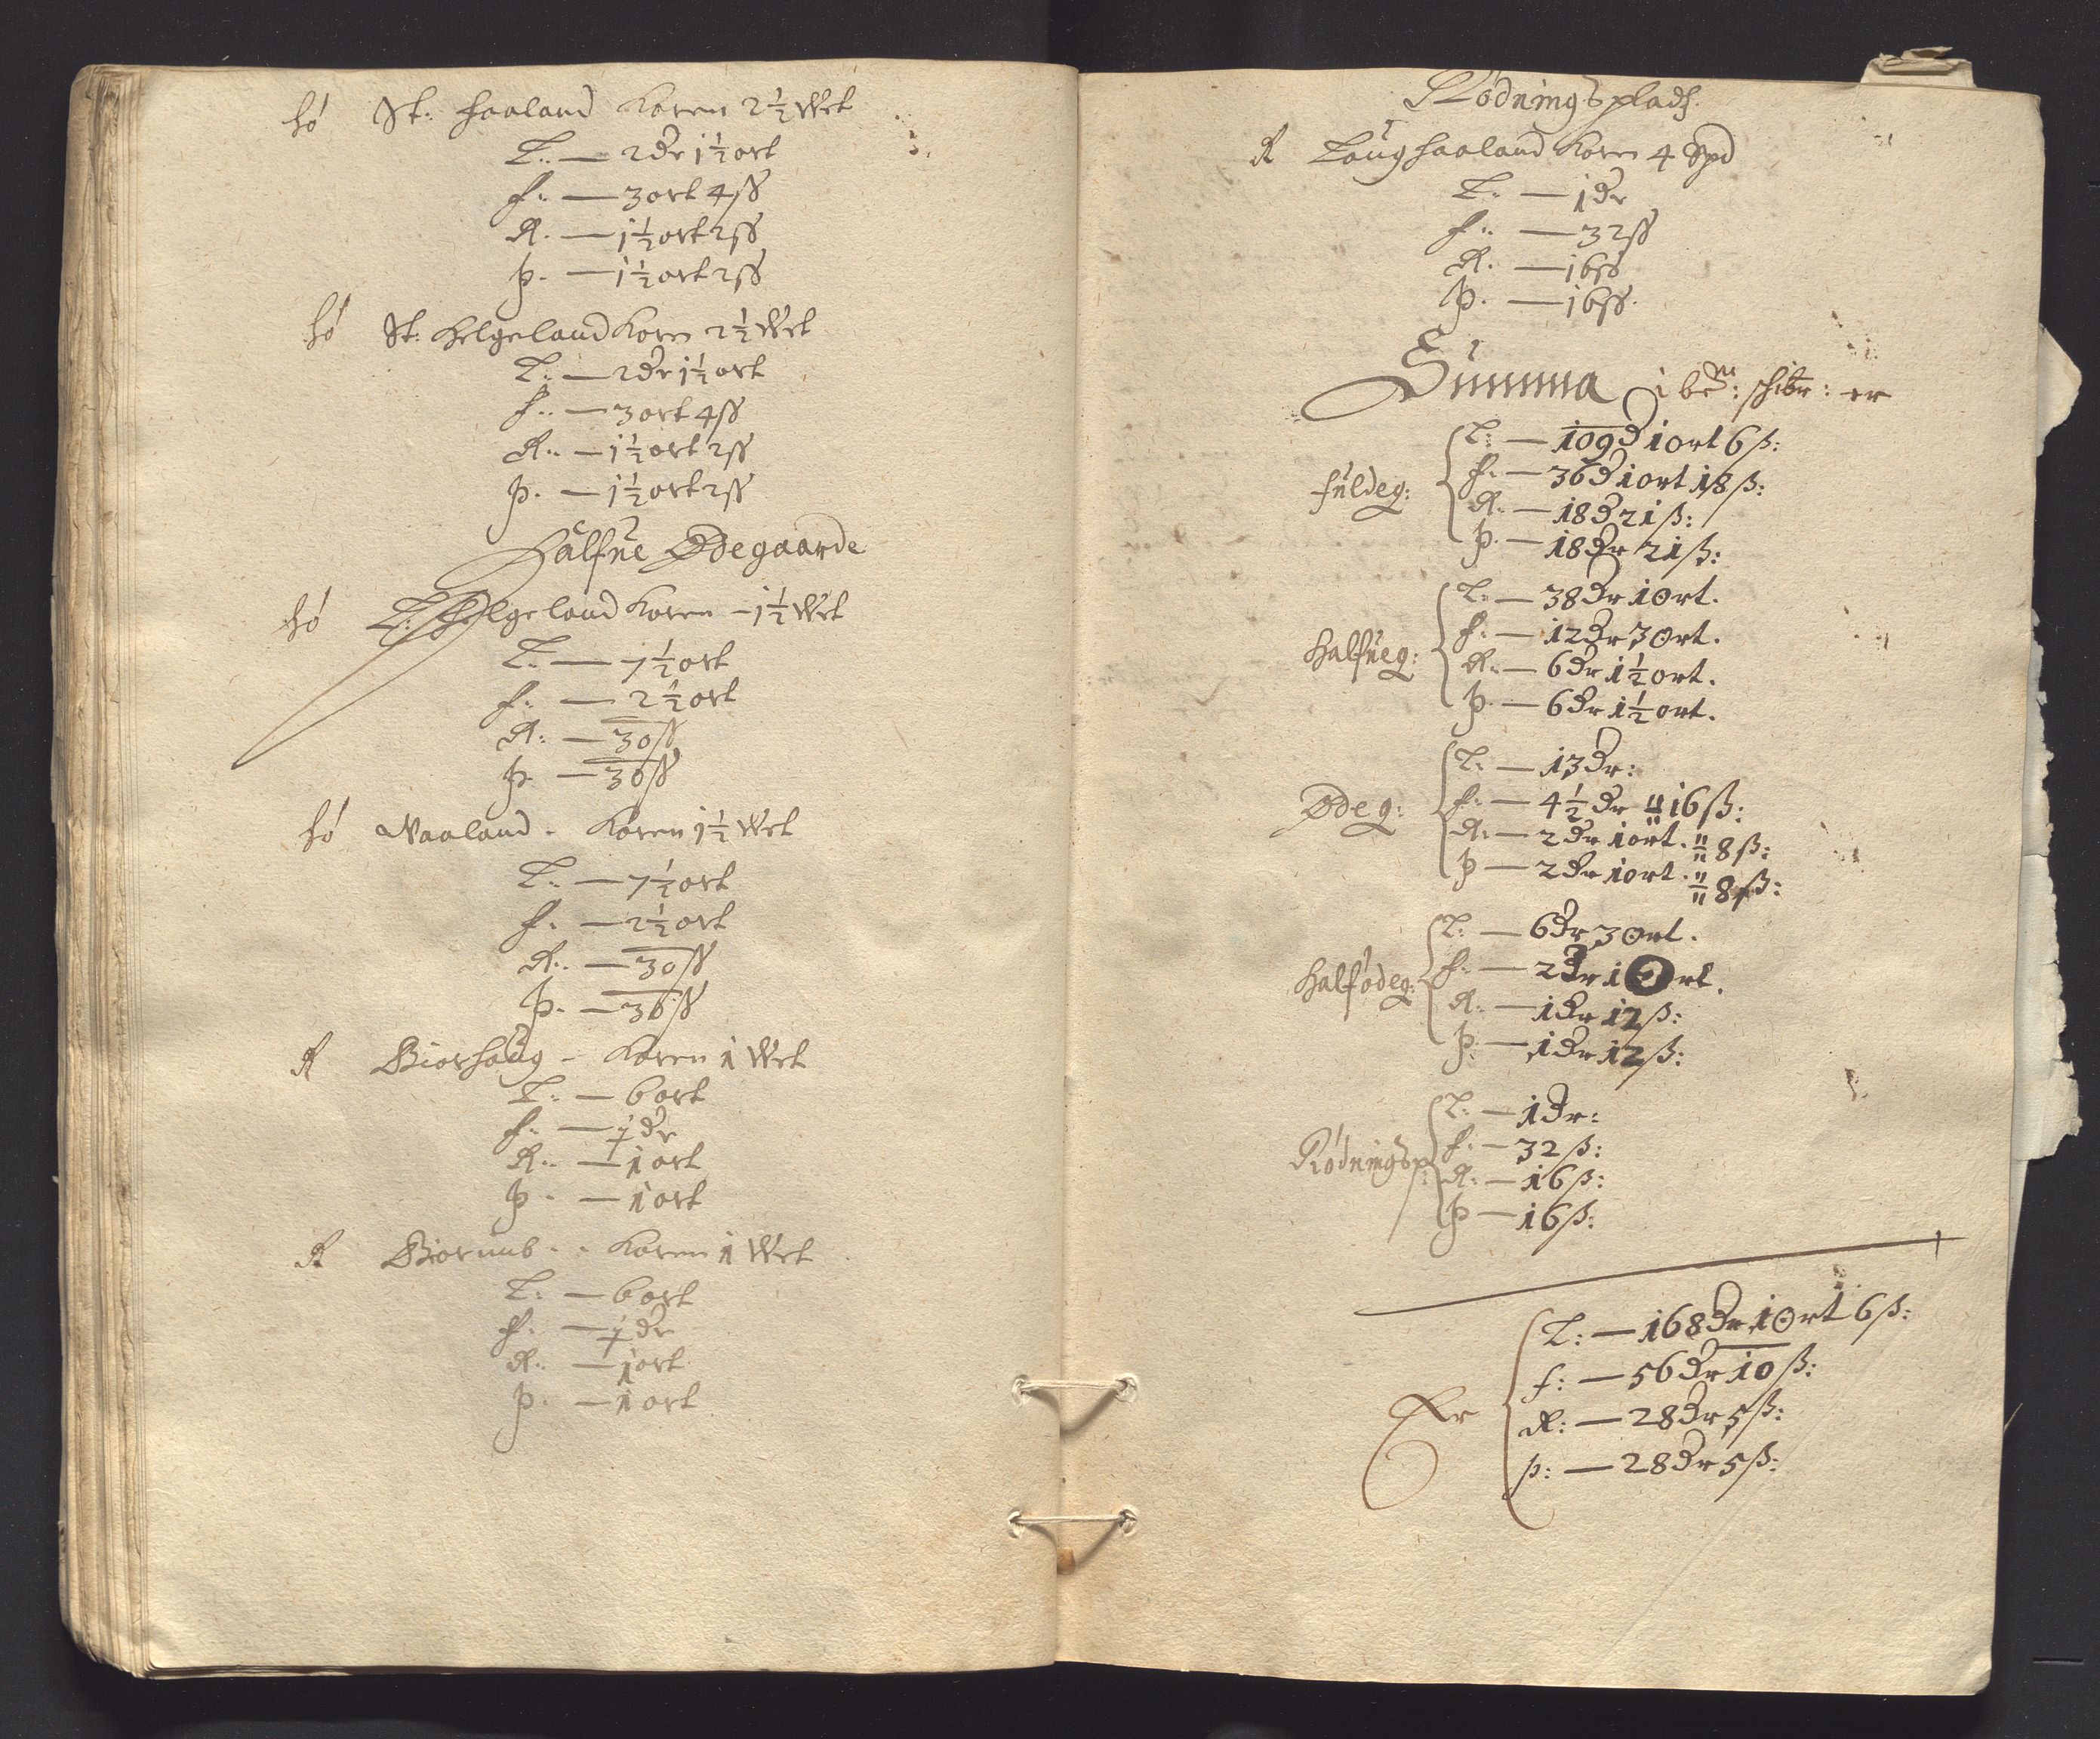 hó St: haaland Koren 2½ Wet
T: — 2dr 1½ ort
f: — 3 ort 4 ß
R: — 1½ ort 2 ß
þ. — 1½ ort 2 ß
hó St: helgeland Koren 2½ Wet
T: — 2dr 1½ ort
f: — 3 ort 4 ß
R: — 1½ ort 2 ß
þ. — 1½ ort 2 ß
Halfue Ødegaarde
hó L: helgeland Koren — 1½ Wet
T: — 7½ ort
f: — 2½ ort
R: — 30 ß
þ. — 30 ß
hó Vaaland - Koren 1½ Wet
T: — 7½ ort
f. — 2½ ort
R: — 30 ß
þ. — 30 ß
R Biorhaug - Koren 1 Wet
T: — 6 ort
f: — ½ dr
R: — 1 ort
þ - — 1 ort
R Biornub - - Koren 1 Wet
T: — 6 ort
f: — ½ dr
R: — 1 ort
þ. — 1 ort
Rödningsplads.
R Laughaaland Koren 4 Spd
T: — 1dr
f: — 32 ß
R. — 16 ß
þ. — 16 ß.
Summa i be: schibr: er
fuldeg:
T: — 109D 1 ort 6 ß:
f: — 36D 1 ort 18 ß:
R: — 18D 21 ß:
þ. — 18Dr 21 ß:
halfueg:
T: — 38Dr 1 Ort.
f: — 12Dr 3 Ort.
R: — 6Dr 1½ ort.
þ. — 6Dr 1½ ort.
Ødeg:
T: — 13Dr:
f: — 4½ Dr 16 ß:
R: — 2Dr 1 ort. 8 ß:
þ — 2Dr 1 ort. 8 ß:
halfödeg:
T: — 6Dr 3 Ort.
f: — 2Dr 1 Ort.
R: — 1Dr 12 ß:
þ: — 1Dr 12 ß:
Rödningsp:
T: — 1Dr:
f: — 32 ß:
R: — 16 ß:
þ — 16 ß:
Er
T: — 168Dr 1 Ort 6 ß:
f: — 56Dr 10 ß:
R: — 28Dr 5 ß:
þ: — 28Dr 5 ß: